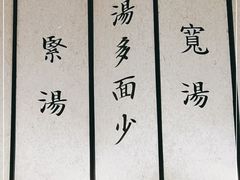 寬湯
湯多面少
緊湯